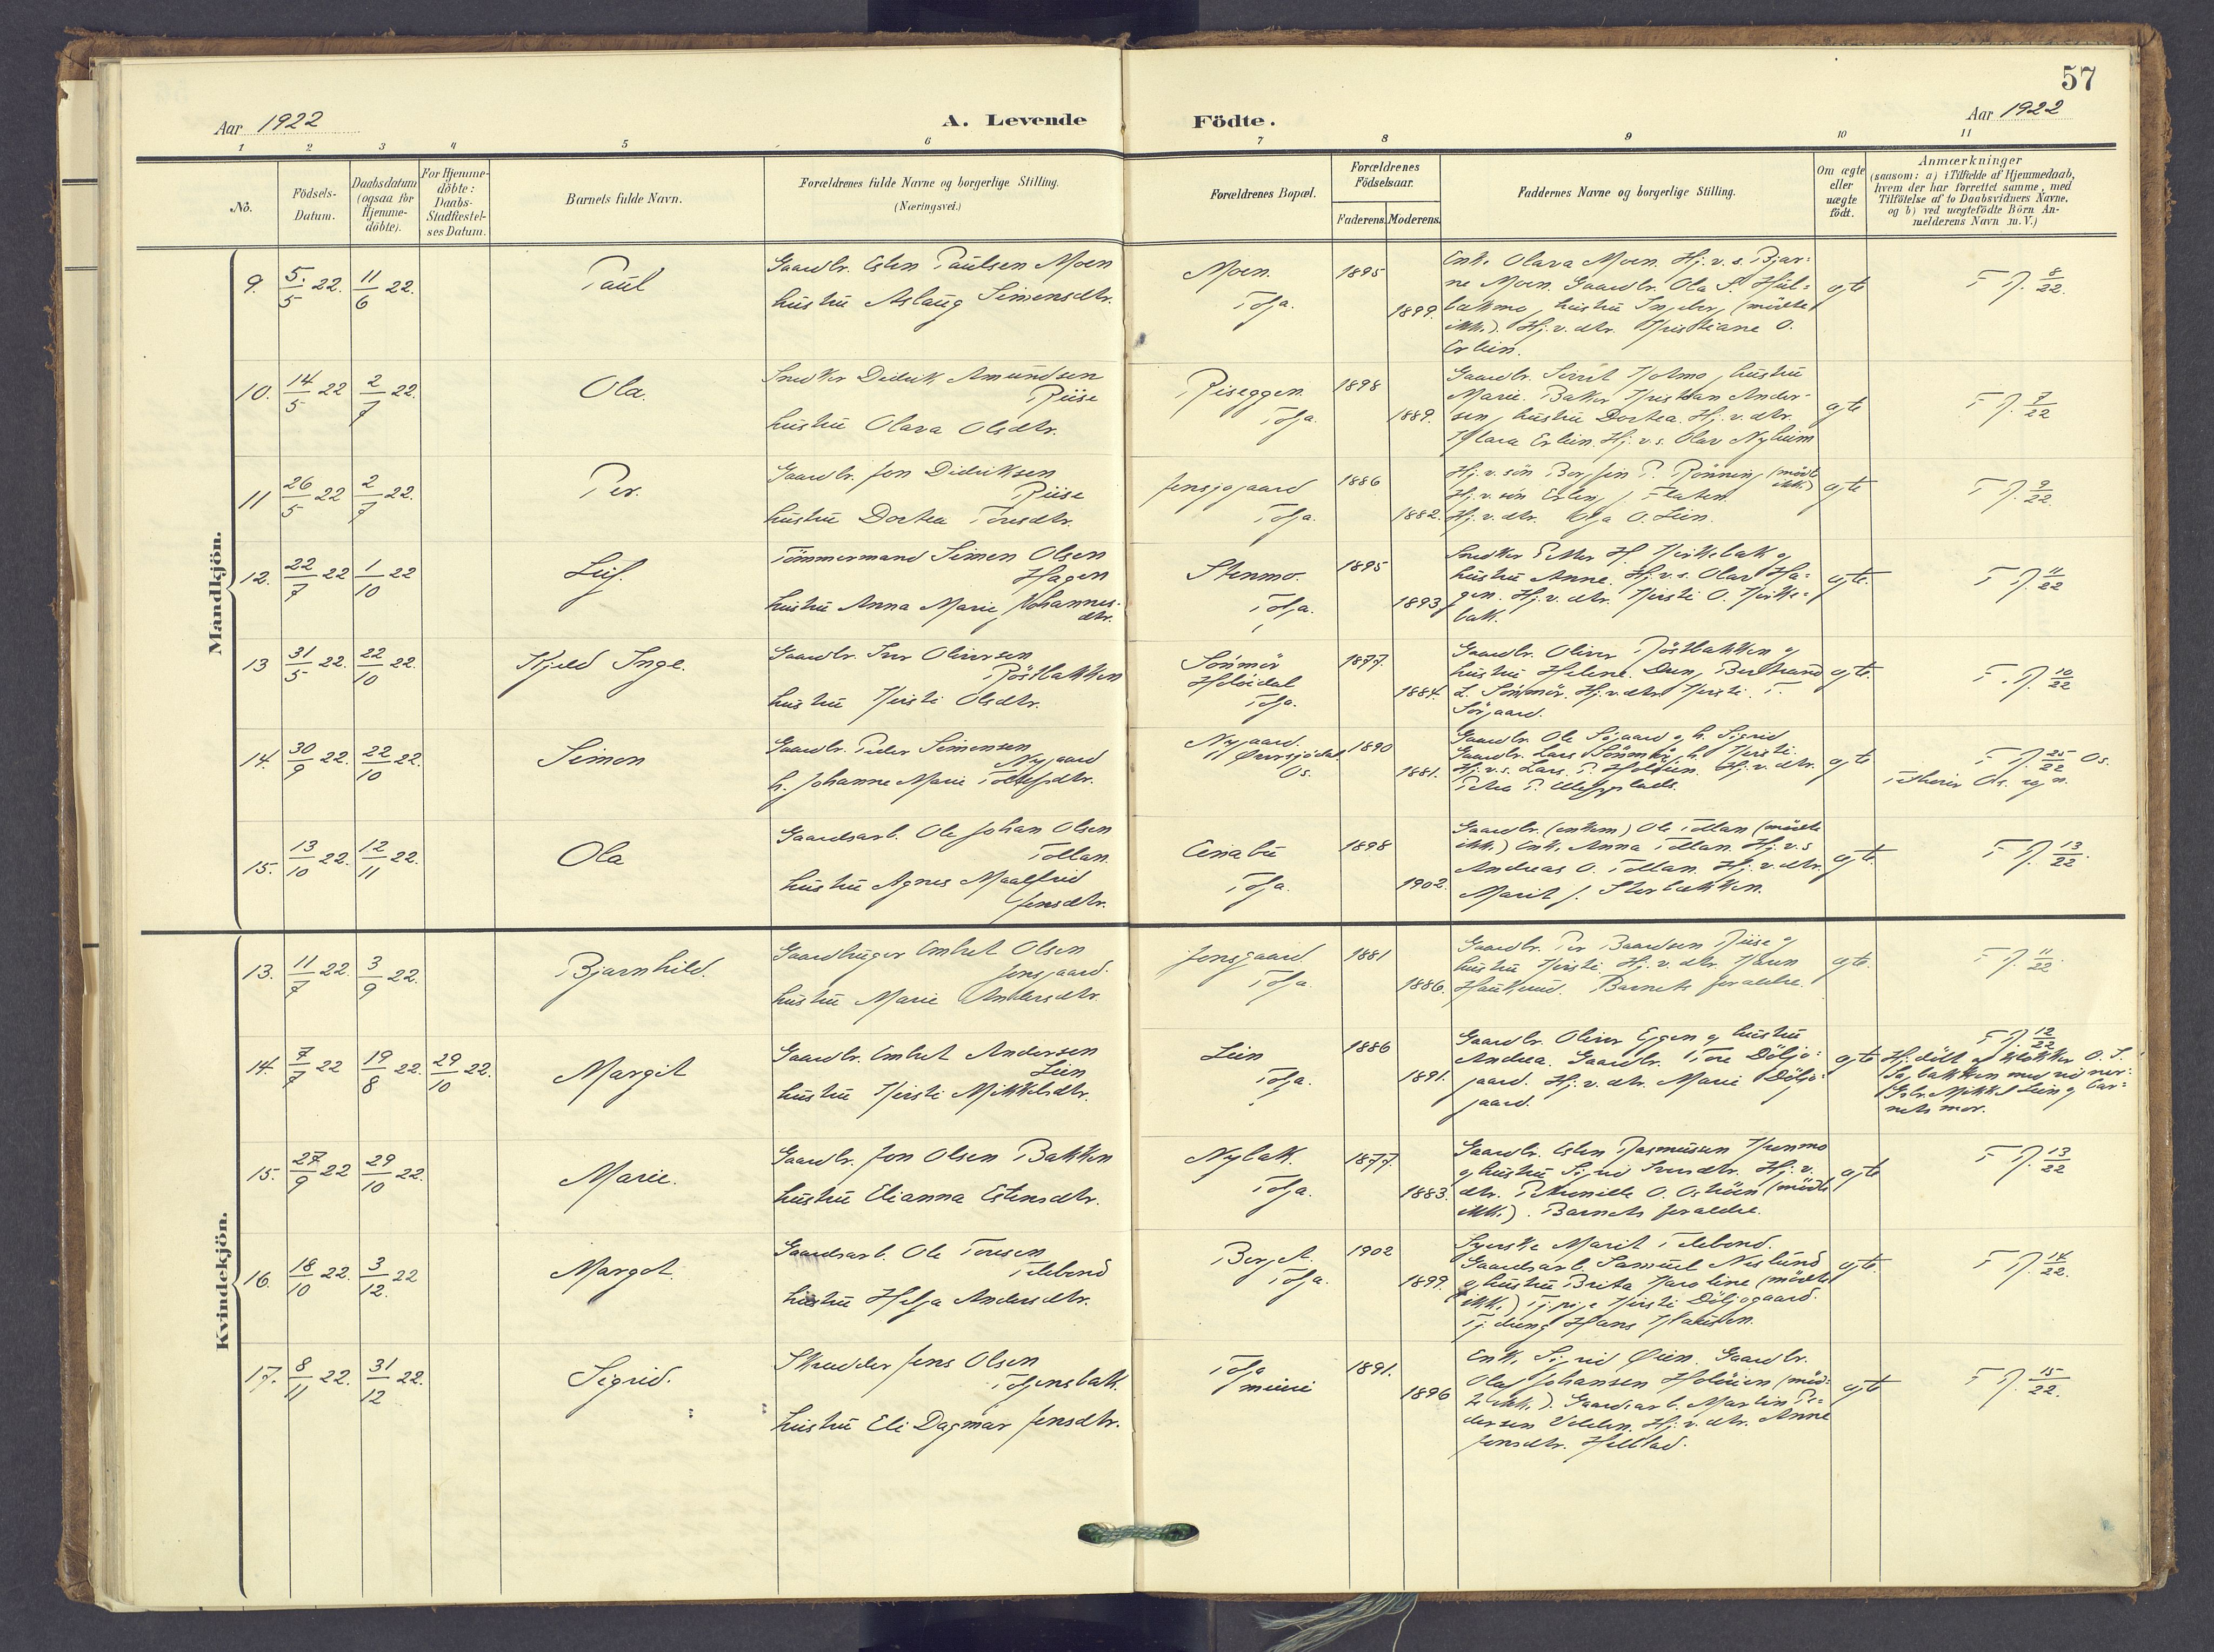 57
Aar 1922
A. Levende
Födte.
Aar 1922
1
2
3
4
5
6
7
8
9
10
11
No.
Födsels-
Datum.
Daabsdatum
(ogsaa for
Hjemme-
döbte).
For Hjemme-
döbte:
Daabs-
Stadfæstel-
ses Datum.
Barnets fulde Navn.
Forældrenes fulde Navne og borgerlige Stilling.
(Næringsvei.)
Forældrenes Bopæl.
Forældrenes
Födselsaar.
Faderens.
Moderens.
Faddernes Navne og borgerlige Stilling.
Om ægte
eller
uægte
födt.
Anmærkninger
(saasom: a) i Tilfælde af Hjemmedaab,
hvem der har forrettet samme, med
Tilföielse af to Daabsvidners Navne,
og b) ved uægtefödte Börn An-
melderens Navn m. V.)
Mandkjön.
9. 5/5 22. 11/6 22. Paul
Gaardbr. Esten Paulsen Moen
hustru Aslaug Simensdtr.
Moen
Tolga.
1895
1899.
Enke Olava Moen. Hj. v. s. Bjar-
ne Moen. Gaardbr. Ola S. Hul-
bækmo, hustru Ingeborg (mödte
ikke). Hj. v. dtr. Kristiane O.
Erlien.
egte
F. N. 8/22.
10. 14/5 22 2/7 22. Ola.
Snedker Didrik Amundsen
Riise
hustru Olava Olsdtr.
Riseggen
Tolga.
1898
1889.
Gaardbr. Sivert Holmo, hustru
Marie. Baker Kristian Ander-
sen, hustru Dortea. Hj. v. dtr.
Klara Erlien. Hj. v. s. Olav Nyheim
egte
F. N. 7/22
11 26/5 22 2/7 22. Per.
Gaardbr. Jon Didriksen
Riise
hustru Dortea Toresdtr.
Jensgjogaard
Tolga.
1886
1882.
Hj. v. sön Bergsvin P. Rönning (mödte
ikke)
Hj. v. sön Erling J. Flaten.
Hj. v. dtr. Olga O. Lien.
egte
F. N. 9/22
12. 22/7 22 1/10 22 Leif.
Tömmermand Simen Olsen
Hagen
hustru Anna Marie Johannes-
dtr.
Stenmo.
Tolga.
1895
1893
Snedker Petter H. Kirkebak og
hustru Anne. Hj. v. s. Olav Ha-
gen. Hj. v. dtr. Kirsti O. Kirke-
bak.
egte.
F. N. 11/22
13 31/5 22. 22/10 22. Kjeld Inge.
Gaardbr. Iver Oliversen
Röstbakken
hustru Kirsti Olsdtr.
Sönmör
Holöidal
Tolga.
1877.
1884.
Gaardbr. Oliver Röstbakken og
hustru Helene. Dreng Bertrand
L. Sönmör. Hj. v. dtr. Kirsti T.
Sörgaard.
egte.
F. N. 10/22
14. 30/9 22. 22/10 22. Simon
Gaardbr. Peder Simensen
Nygaard
h. Johanne Marie Tollefsdtr.
Nygaard.
Tufsingdal
Os.
1890
1881.
Gaardbr. Ole Sögaard og h. Sigrid
Gaardbr. Lars Sönmör, h. Kirsti.
Hj. v. s. Lars P. Holöien. Hj. v. dtr.
Petra P.
egte
F. N. 25/22 Os.
15. 13/10 22. 12/11 22. Ola
Gaardsarb. Ole Johan Olsen
Tollan.
hustru Agnes Maalfrid
Jensdtr.
Enabu
Tolga.
1898
1902.
Gaardbr. (enkem) Ole Tollan (mödte
ikke) Enke Anna Tollan. Hj. v. s
Andreas O. Tollan. Hj. v. dtr.
Marit J. Storbækken.
egte.
F. N. 13/22.
Kvindekjön.
13. 11/7 22. 3/9 22. Bjarnhild.
Gaardbruger Embret Olsen
Jonsgaard.
hustru Marie Andersdtr.
Jonsgaard
Tolga.
1881
1886.
Gaardbr. Per Baardsen Riise og
hustru Kirsti. Hj. v. dtr. Karen
Barnets forældre.
egte.
F. N. 11/22.
14. 7/7 22 19/8 22. 29/10 22. Margit
Gaardbr. Embret Andersen
Lien
hustru Kirsti Mikkelsdtr.
Lien
Tolga.
1886
1891.
Gaardbr. Oliver Eggen og hustru
Andrea. Gaardbr. Tore Döljo-
gaard. Hj. v. dtr. Marie Döljo-
gaard.
egte
F. N. 12/22
Hj. döbt af klokker O. S.
Sagbakken med vidner:
Gbr. Mikkel Lien og bar-
nets mor.
15. 27/9 22 29/10 22. Marie.
Gaardbr. Jon Olsen Bakken
hustru Elianna Estensdtr.
Nybak.
Tolga.
1877.
1883.
Gaardbr. Esten Rasmussen Kvenmo
og hustru Sigrid Iversdtr. Hj. v.
dtr. Petronille O. Östöien (mödte
ikke). Barnets forældre.
egte
F. N. 13/22
16. 18/10 22. 3/12. 22 Margot.
Gaardsarb. Ole Toresen
Telebond
hustru Helga Andersdtr.
Berget.
Tolga.
1902
1899.
Syerske Marit Telebond.
Gaardsarb. Samuel Neslund
og hustru Brita Karoline (mödte
ikke) Tj. pige Kirsti Döljogaard.
Tj. dreng Hans Klausen.
egte.
F. N. 14/22.
17. 8/11 22. 31/12 22. Sigrid.
Skredder Jens Olsen
Tolgensbak.
hustru Eli Dagmar Jensdtr.
Tolga
1891.
1896
Enke Sigrid Öien. Gaardbr.
Olaf Johansen Holöien (möd-
te ikke). Gaardsarb. Martin Pe-
dersen Velden. Hj. v. dtr. Anne
Jensdtr. Hellstad.
egte
F. N. 15/22.